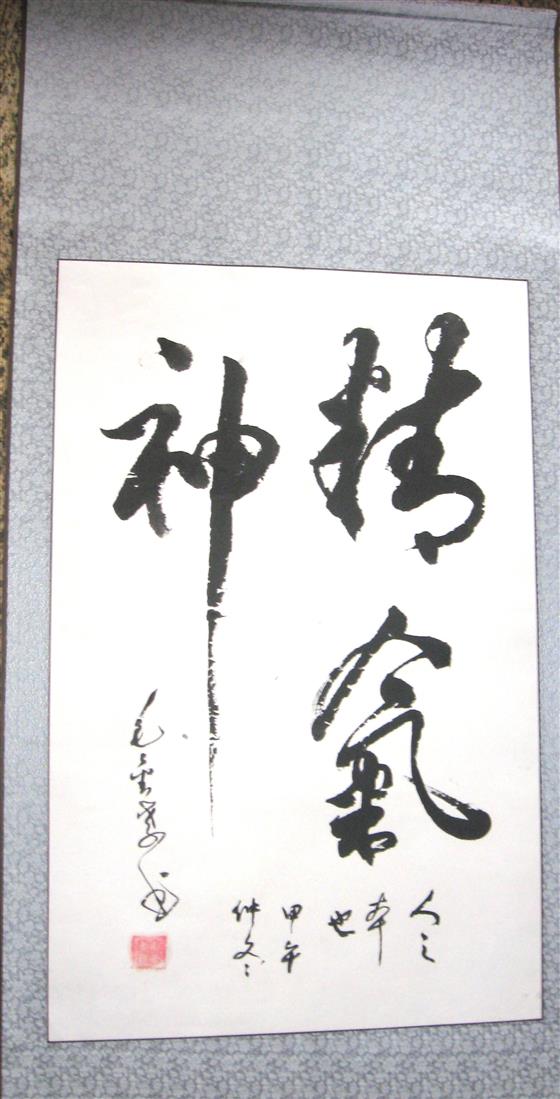 精氣
神
人之
本
也
甲午
仲冬